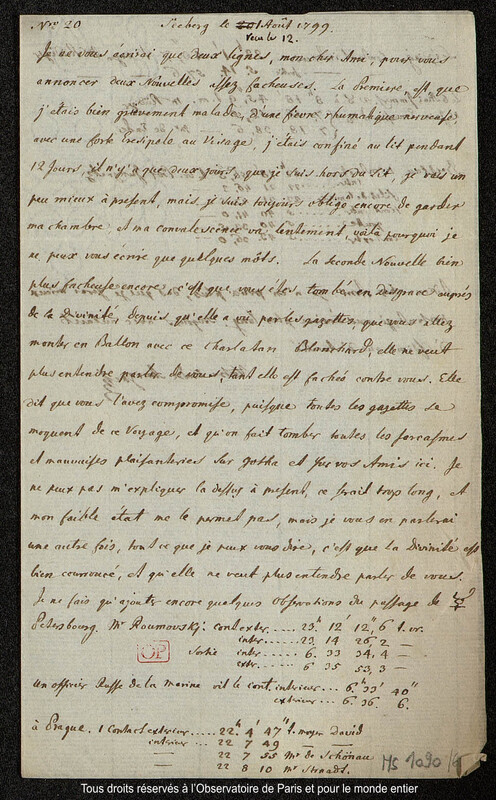 Nro 20 Seeberg le 20 Août 1799.
reçu le 12.
Je ne vous écrirai que deux lignes, mon cher Ami, pour vous
annoncer deux Nouvelles assez facheuses. La Premiere, est, que
j'étais bien grievement malade d'une fievre rhumatique nerveuse
avec une forte Eresipele au Visage, j'étais confiné au lit pendant
12 Jours, il n'y a que deux jours, que je suis hors du lit, je vais un
peu mieux à présent, mais je suis toujours obligé encore de garder
ma chambre, et ma convalescence va lentement, voilà pourquoi je
ne peux vous ecrire que quelques môts. La seconde Nouvelle bien
plus facheuse encore, c'est que vous êtes tombé en disgrace auprès
de la divinité, depuis qu'elle a vû par les gazettes que vous étiez
monter en Ballon avec ce Charlatan Blanchard, elle ne veut
plus entendre parler de vous, tant elle est fachée contre vous. Elle
dit que vous l'avez compromise, puisque toutes les gazettes se
moquent de ce Voyage, et qu'on fait tomber toutes les sorcasmes
et mauvaises plaisanteries sur Gotha et sur vos Amis ici. Je
ne peux pas m'expliquer la dessus à present, ce serait trop long, et
mon faible état me le permet pas, mais je vous en parlerai
une autre fois, tout ce que je peux vous dire, c'est que la divinité est
bien courroucé, et qu'elle ne veut plus entendre parler de vous.
Je ne fais qu'ajouter encore quelques Observations du passage de ☿
Petersbourg. Mr Roumovski; cont. exter..... 23h 12' 12",6 t. vr.
inter..... 23 14 26,2 —
Sortie inter..... 6 33 34,4 —
exter.... 6 35 53,3 —
OP
un officier Russe de la marine vit le cont. interieure... 6h 33' 40"
exterieure... 6. 36. 6.
à Prague. 1 Contact exterieur..... 22h 4' 47" t. moyen David
intérieure... 22 7 49 — —
— 22 7 55 Mr de Schönau
— 22 8 10 Mr Straadt.
MS 1090
Tous droits réservés à l'Observatoire de Paris et pour le monde entier